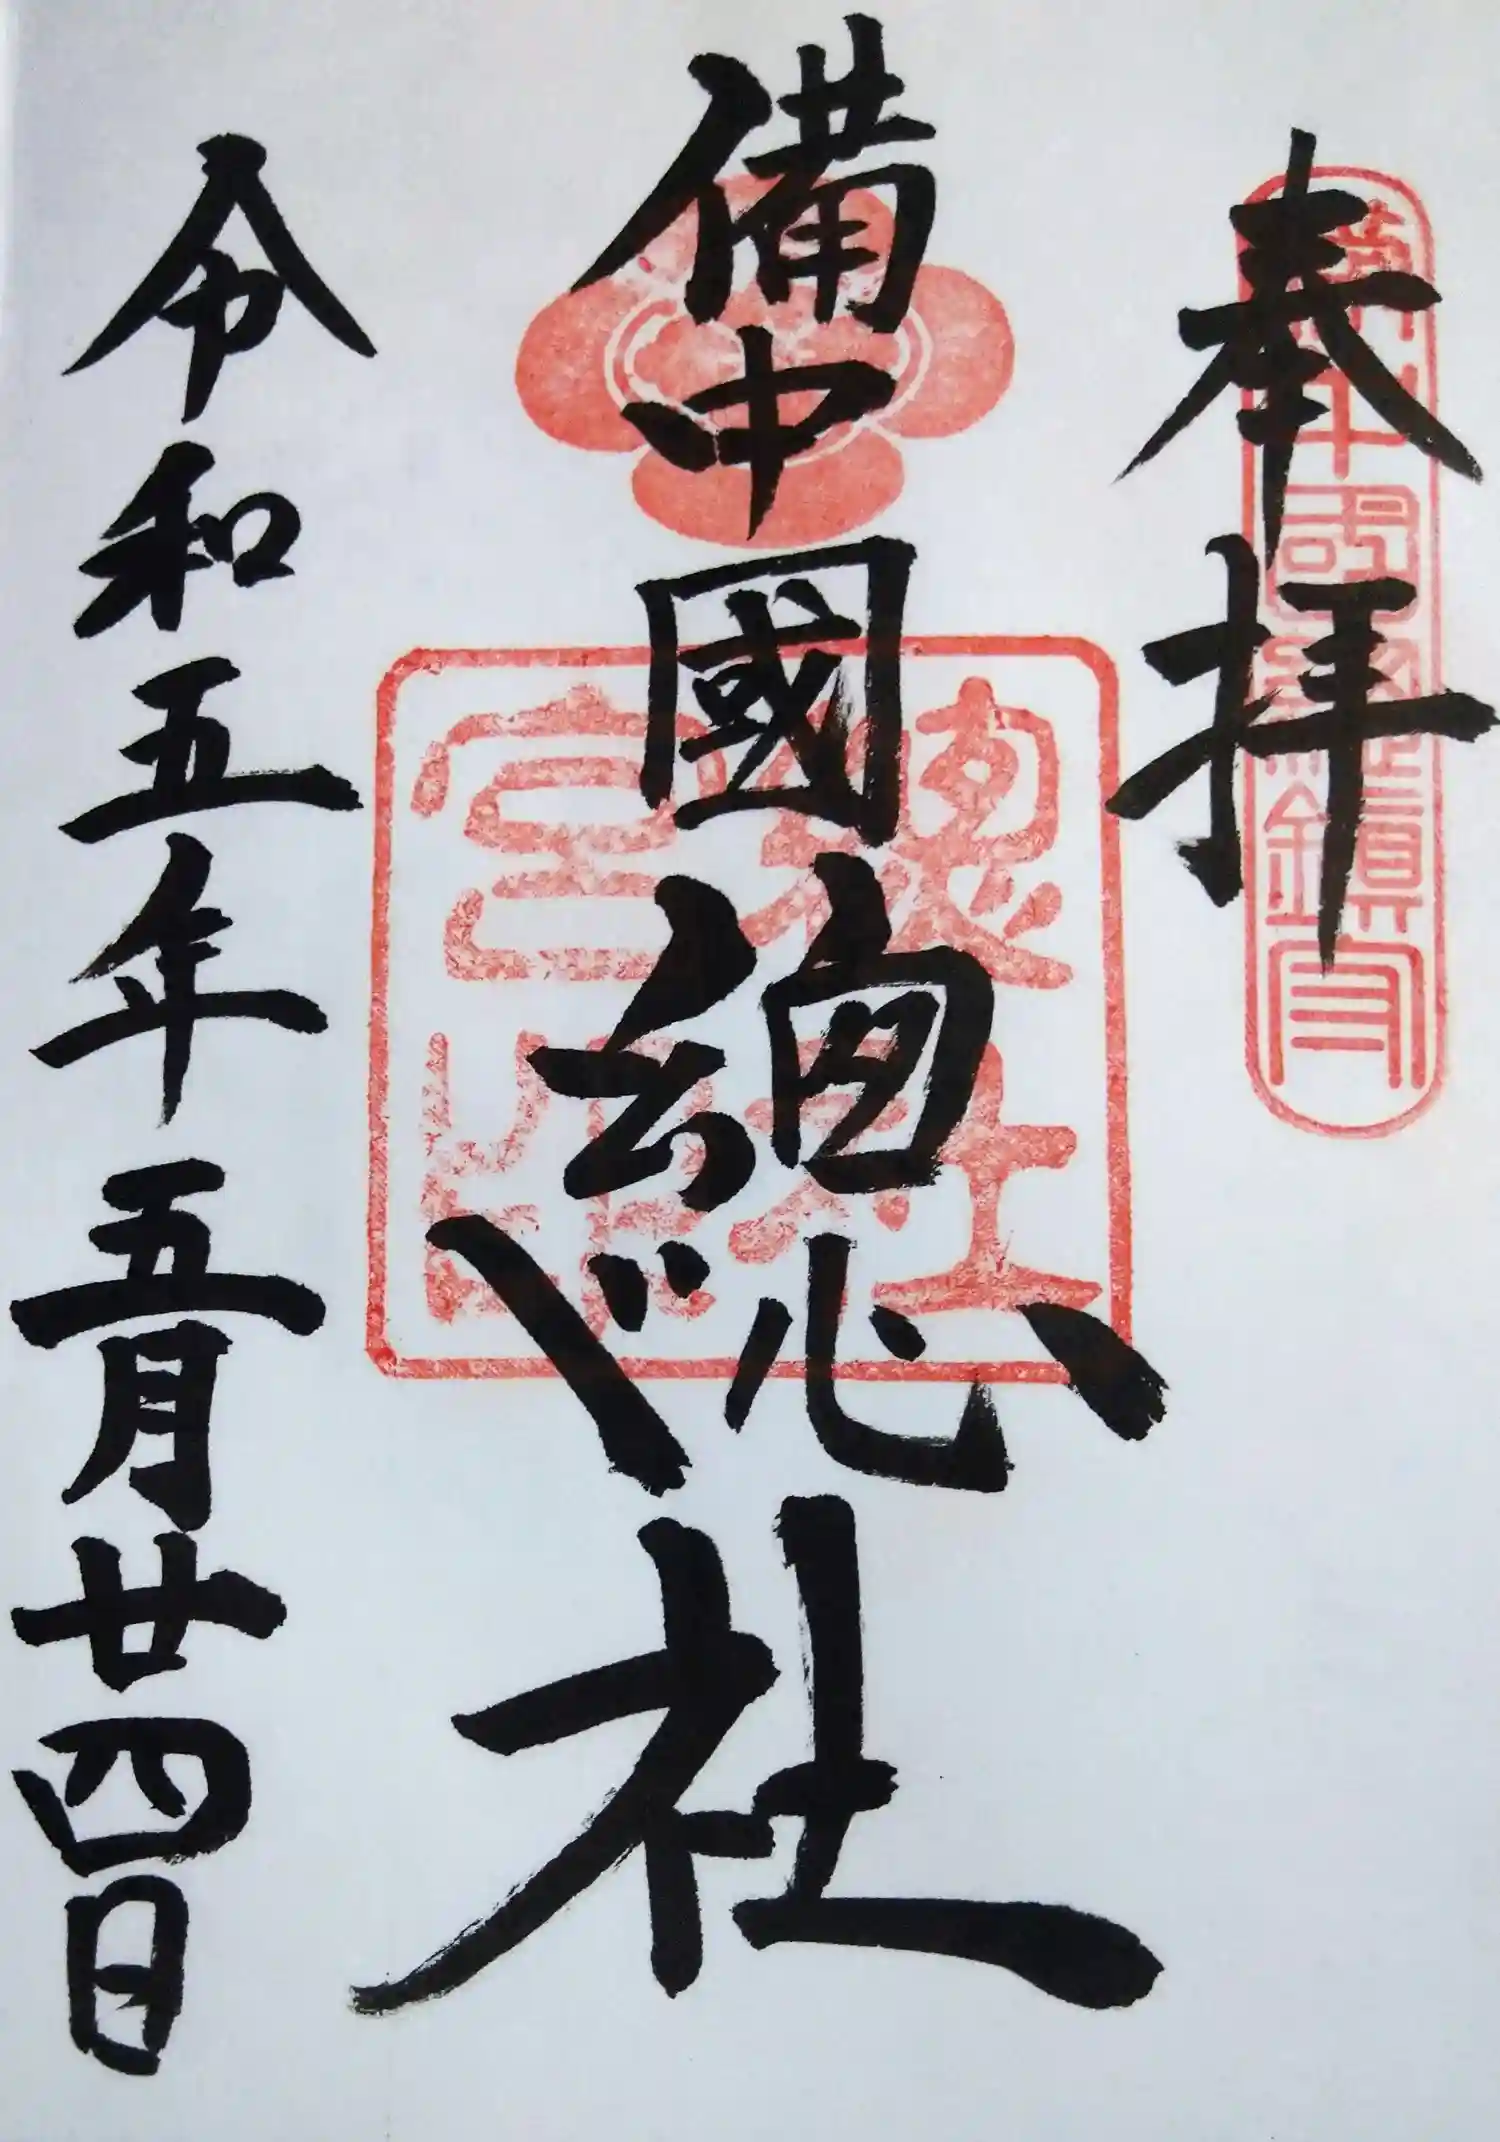 奉拝
備中國總社
令和五年五月廿四日
總社宮印